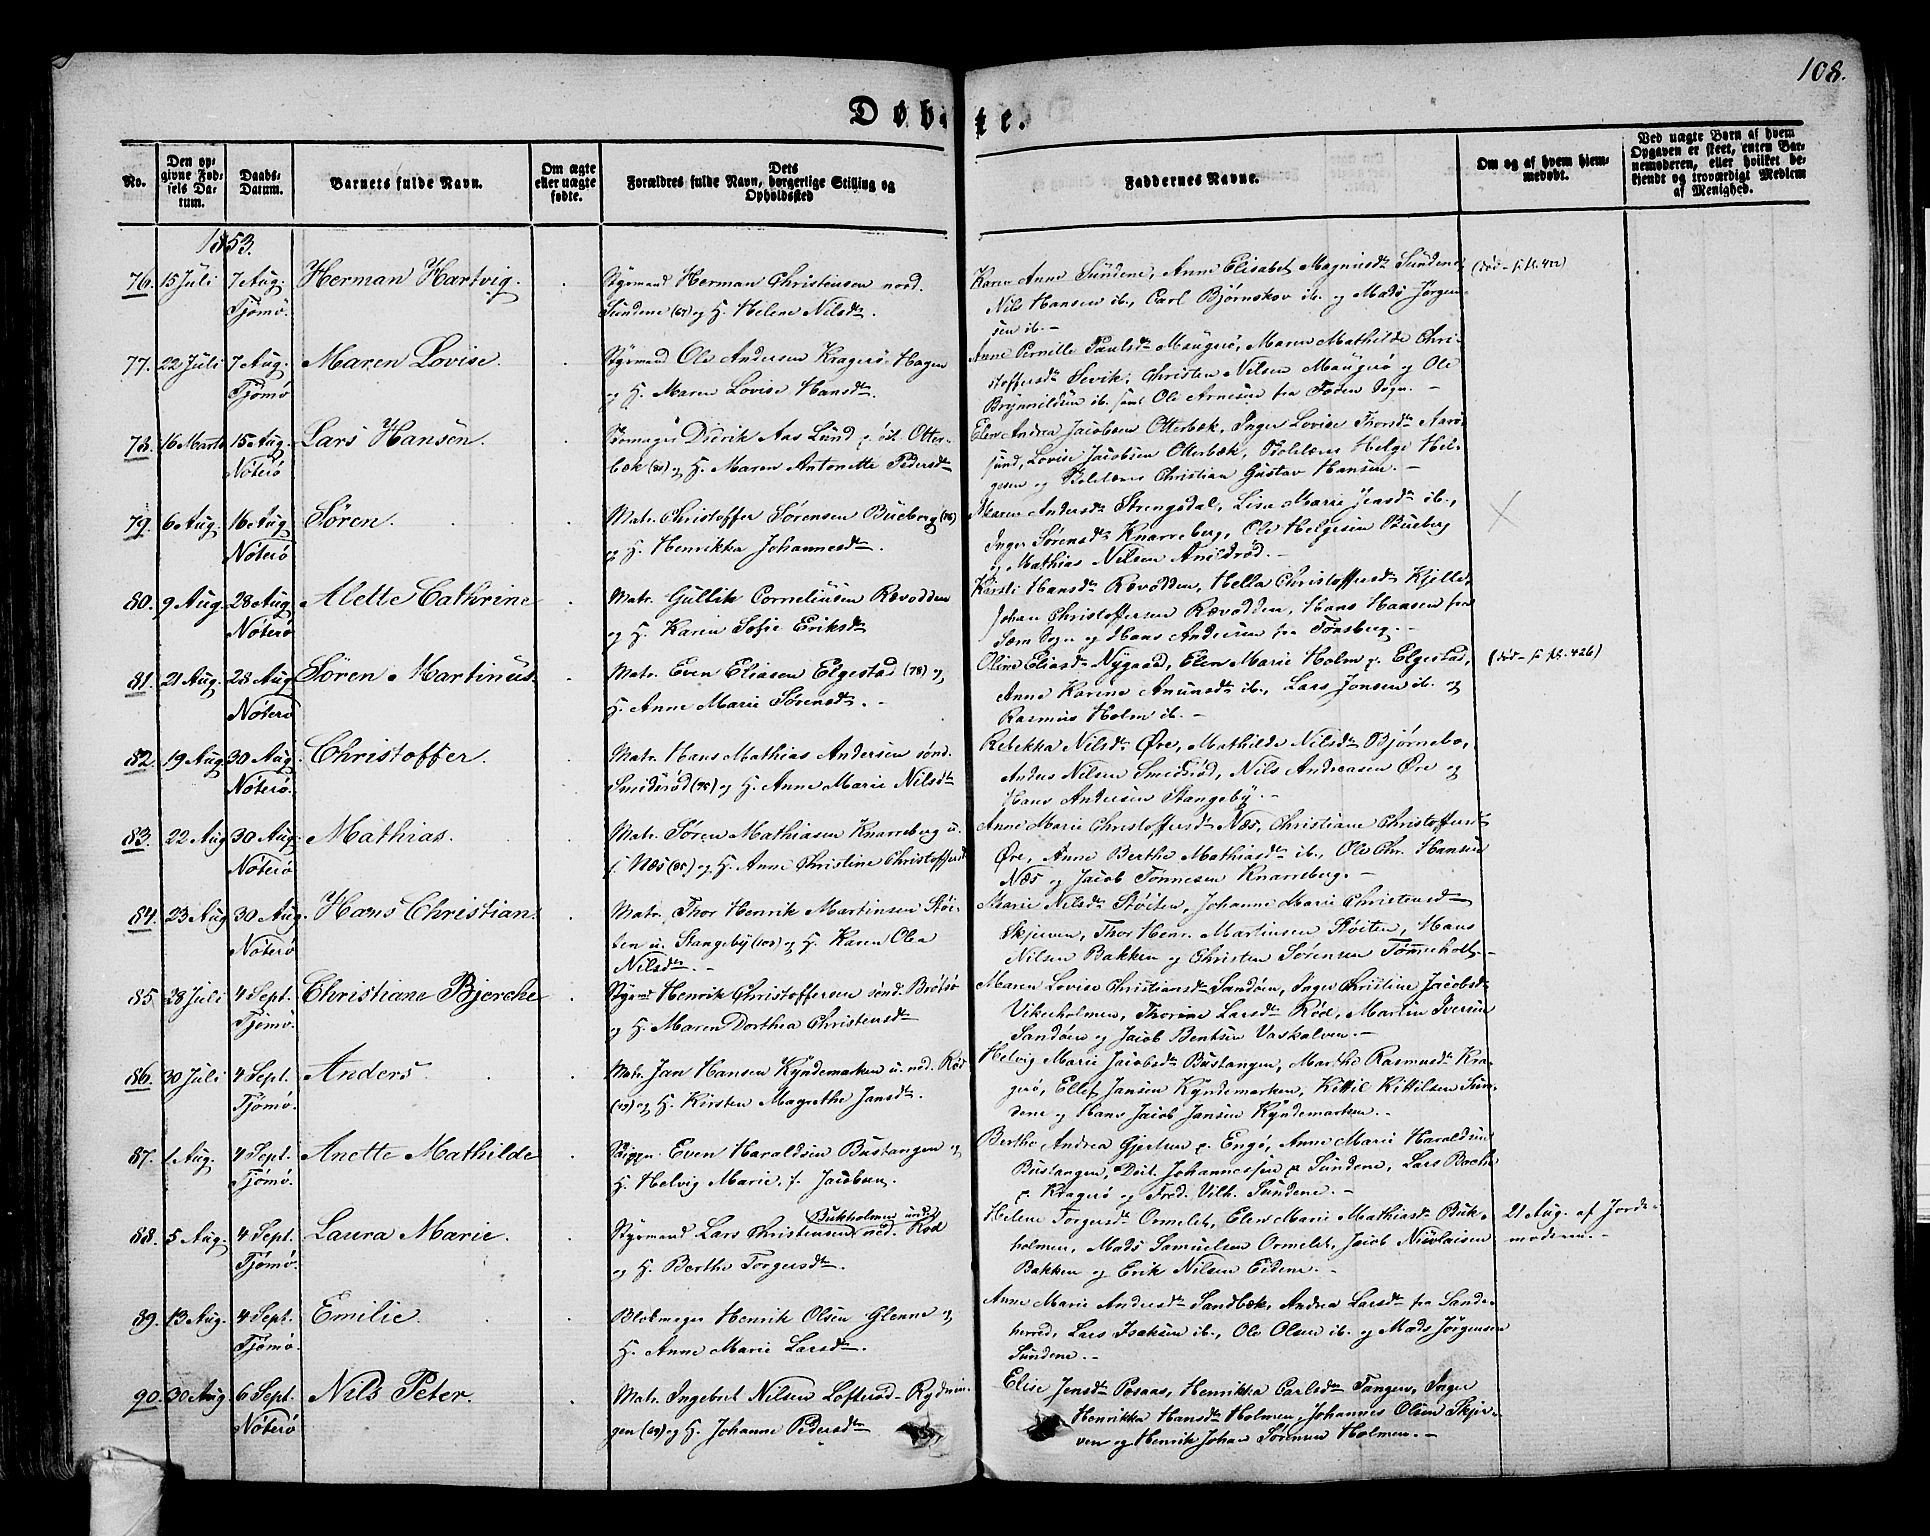 108.
Døbte.
No.
Den opgivne Fødsels Datum.
Daabs-Datum.
Barnets fulde Navn.
Om ægte eller uægte fødte.
Dets Forældres fulde Navn, borgerlige Stilling og Opholdssted
Faddernes Navne.
Om og af hvem hjemmedøbt.
Ved uægte Børn af hvem Opgaven er skeet, enten Barnemoderen, eller hvilket bekjendt og troværdigt Medlem af Menighed.
1853.
76. 15 Juli 7 Aug. Tjømø. Herman Hartvig.
Styrmand Herman Christensen nord.
Sundene (67) og H. Helene Nilsdtr.
Karen Anne Sundene, Anne Elisabet Magnusdtr Sundene,
Nils Hansen ib., Carl Bjørnskov ib. og Mads Jørgen-
sen ib. –
77. 22 Juli 7 Aug. Tjømø Maren Lovise.
Styrmand Ole Andersen Kragerø Hagen
og H. Maren Lovise Hansdtr.
Anne Pernille Paulsdtr Maugerø, Maren Mathilde Chri-
stoffersdtr Sevik, Christen Nilsen Maugerø og Ole
Brynnildsen ib. samt Ole Arnesen fra Foden Sogn. –
78. 16 Marts 15 Aug. Nøterø Lars Hansen.
Didrik Aas Lund p. øst. Otter-
bæk og H. Maren Antonette Pedersdtr
Elen Andrea Jacobsen Otterbæk, Inger Lovise Thorsdtr Aarø-
sund, Lovise Jacobsen Otterbæk, Helge Hel-
gesen og Christian Gustav Hansen. –
79. 6 Aug. 16 Aug Nøterø Søren.
Matr. Christoffer Sørensen Bueberg (76)
og H. Henrikka Johannesdtr.
Maren Andersdtr Strengsdal, Lisa Marie Jensdtr ib.,
Inger Sørensdtr Knarreberg, Ole Helgesen Bueberg
og Mathias Nilsen –
80. 9 Aug. 28 Aug Nøterø Alette Cathrine
Matr. Gullik Corneliusen Rævodden
og H. Karen Sofie Eriksdtr
Karsti Hansdtr Rævodden, Hella Christoffersdtr Kjelle,
Johan Christoffersen Rævodden, Hans Hansen fra
Sæm Sogn og Hans Andersen fra Tønsberg. –
81. 21 Aug. 28 Aug Nøterø Søren Martinus.
Matr. Even Eliasen Elgestad (78) og
H. Anne Marie Sørensdtr. –
Oline Eliasdtr Nygaard, Elen Marie Holm p. Elgestad,
Anne Karine Amundsdtr ib., Lars Jonsen ib. og
Rasmus Holm ib. –
82. 19 Aug 30 Aug Nøterø. Christoffer.
Matr. Hans Mathias Andersen sønd.
Smidsrød og H. Anne Marie Nilsdtr
Rebekka Nilsdtr Øre, Mathilde Nilsdtr Bjørnebo,
Anders Nilsen Smidsrød, Nils Andreasen Øre og
Hans Andersen Stangeby. –
83. 22 Aug 30 Aug. Nøterø Mathias.
Matr. Søren Mathiasen Knarreberg u.
Næs og H. Anne Christine Christoffersdtr
Anne Marie Christoffersdtr Næs, Christiane Christoffersdtr
Øre, Anne Berthe Mathiasdtr ib., Ole Chr. Hansen
Næs og Jacob Tønnesen Knarreberg. –
84. 23 Aug 30 Aug. Nøterø Hans Christian.
Matr. Thor Henrik Martinsen Støi-
ten u. Stangeby (103) og H. Karen Olea
Nilsdtr. –
Marie Nilsdtr Støiten, Johanne Marie Christensdtr
Skjerven, Thor Henr. Martinsen Støiten, Hans
Nilsen Bakken og Christen Sørensen Tømmeholt. –
85. 28 Juli 4 Sept. Tjømø. Christiane Bjercke
Styrmd Henrik Christoffersen sønd. Brøtsø
og H. Maren Dorthea Christensdtr
Maren Lovise Christiansdtr Sandøen, Inger Christine Jacobsdtr
Vikerholmen, Thorine Larsdtr Rød, Martin Iversen
Sandøen og Jacob Bentsen Vaskalven. –
86. 30 Juli 4 Sept. Tjømø. Anders.
Matr. Jan Hansen Kyndemarken u. nød. Rød
og H. Kirsten Magrethe Jansdtr.
Helvig Marie Jacobsdtr Bustangen, Marthe Rasmusdtr Kra-
gerø, Ellef Jansen Kyndemarken, Kittil Kittilsen Sun-
dene og Hans Jacob Jansen Kyndemarken. –
87. 1 Aug. 4 Sept. Tjømø. Anette Mathilde
Skipp. Even Haraldsen Bustangen og
H. Helvig Marie, f. Jacobsen.
Berthe Andrea Gjertsen p. Engø, Anne Marie Haraldsen
Bustangen, Johannessen p. Sundene, Lars Backe
p. Kragerø og Fred. Vilh. Sundene. –
88. 5 Aug. 4 Sept. Tjømø. Laura Marie.
Bukholmen under
Styrmand Lars Christensen nød. Rød
og H. Berthe Torgersdtr.
Helene Torgersdtr Ormelet, Elen Marie Mathiasdtr Buk-
holmen, Mads Samuelsen Ormelet, Jacob Nicolaisen
Bakken og Erik Nilsen Eidene. –
21 Aug. af Jorde-
moderen. –
89. 13 Aug. 4 Sept. Tjømø. Emilie.
Blokmager Henrik Olsen Glenne og
H. Anne Marie Larsdtr.
Anne Marie Andersdtr Sandbæk, Andrea Larsdtr fra Sande-
herred, Lars Isaksen ib., Ole Olsen ib. og Mads Jørgensen
Sundene. –
90. 30 Aug. 6 Sept. Nøterø Nils Peter.
Matr. Ingebret Nilsen Lofterød - Rydnin-
gen (69) og H. Johanne Pedersdtr
Elise Jensdtr Posaas, Henrikka Carlsdtr Tangen, Inger
Henrikka Hansdtr Holmen, Johannes Olsen Skjer-
ven og Henrik Johan Sørensen Holmen. –